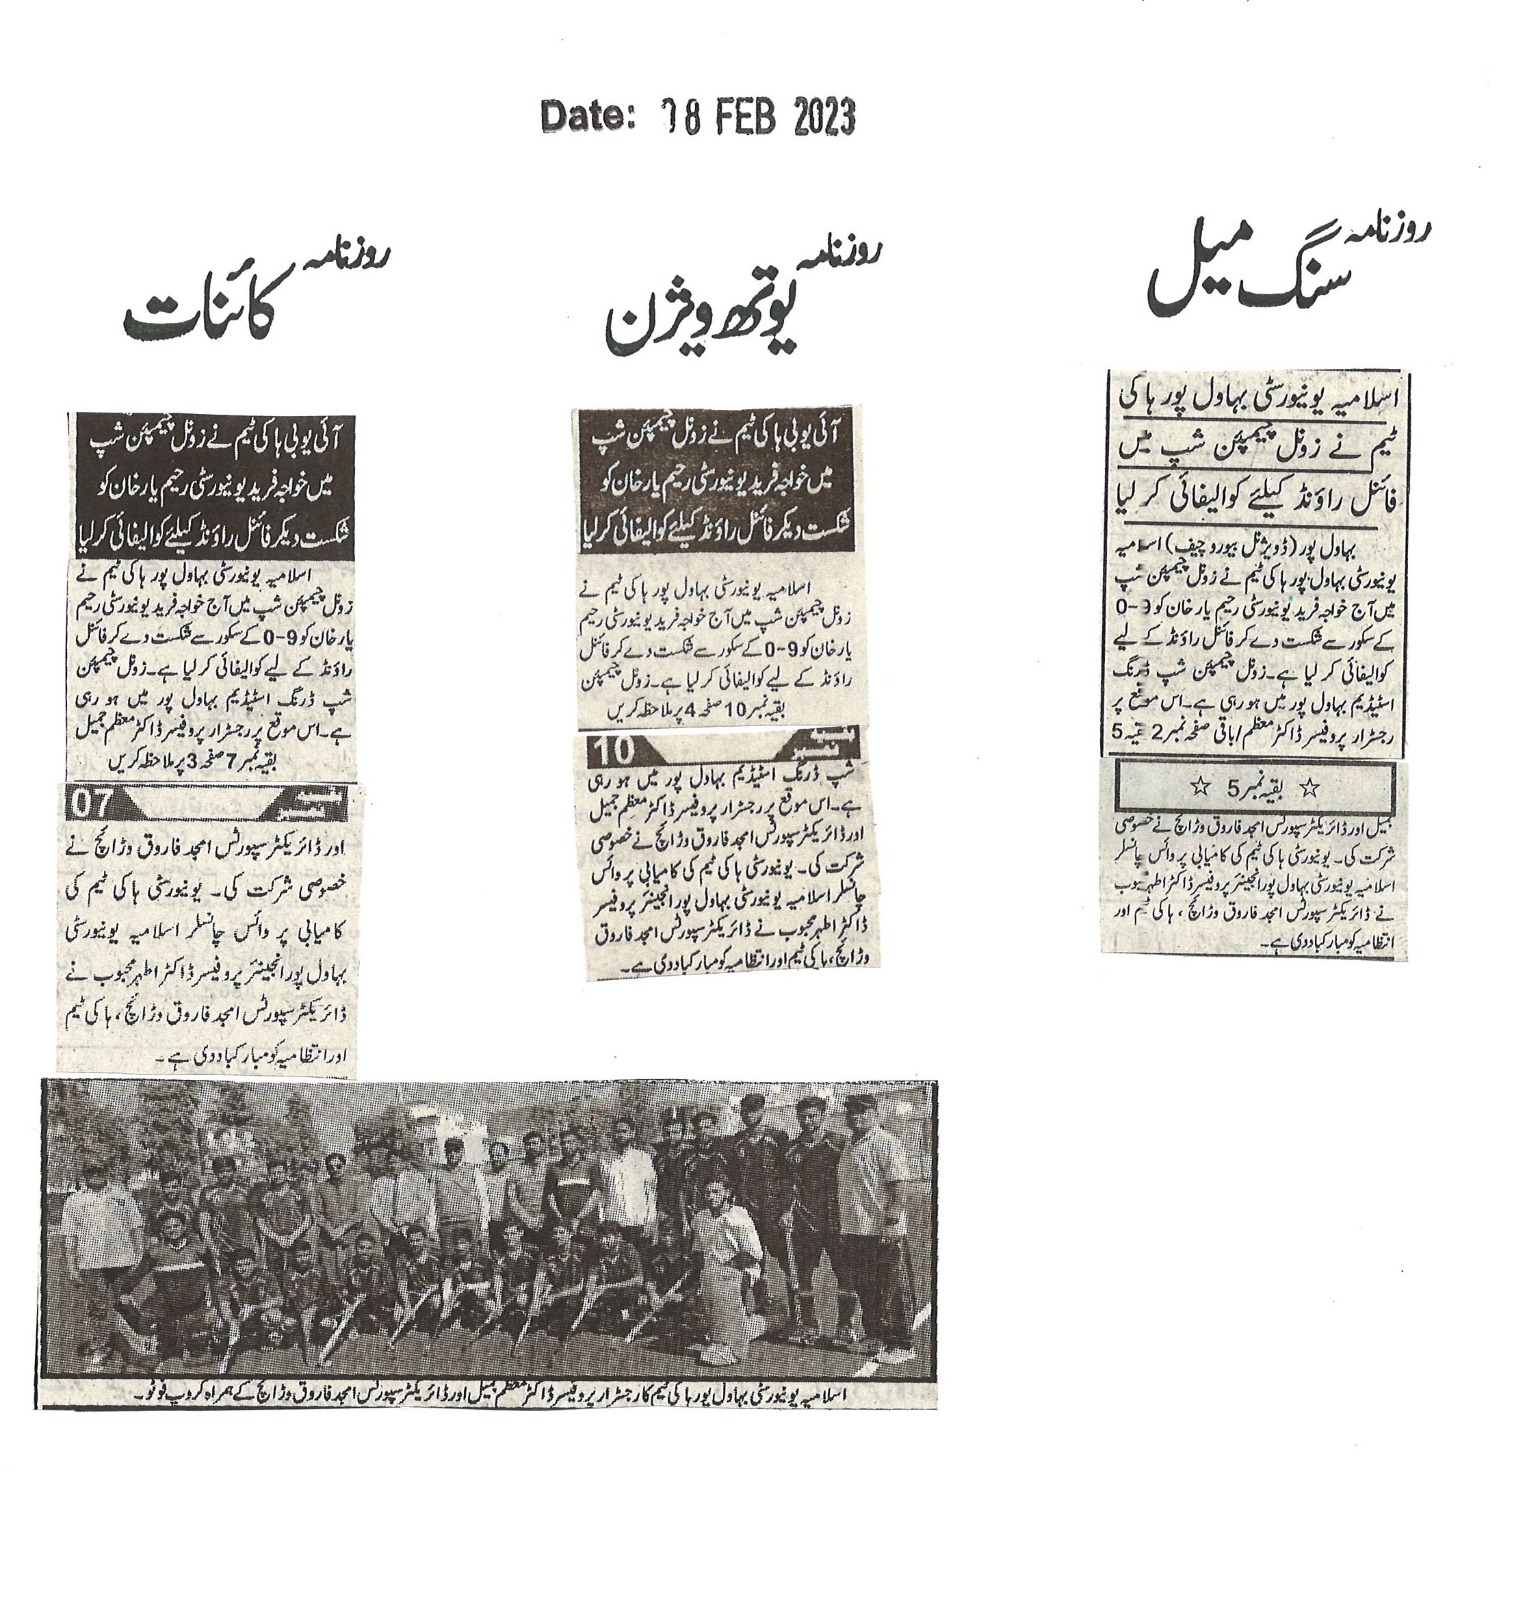 Date: 08 FEB 2023
روزنامہ
سنگ میل
اسلامیہ یونیورسٹی بہاول پور ہاکی
ٹیم نے زونل چیمپئن شپ میں
فائنل راؤنڈ کیلئے کوالیفائی کر لیا
بہاول پور (ڈویژنل بیورو چیف) اسلامیہ
یونیورسٹی بہاول پور ہاکی ٹیم نے زونل چیمپئن شپ
میں آج خواجہ فرید یونیورسٹی رحیم یار خان کو 9-0
کے سکور سے شکست دے کر فائنل راؤنڈ کے لیے
کوالیفائی کر لیا ہے۔ زونل چیمپئن شپ ڈرنگ
اسٹیڈیم بہاول پور میں ہو رہی ہے۔ اس موقع پر
رجسٹرار پروفیسر ڈاکٹر معظم/باقی صفحہ نمبر 2 بقیہ 5
☆ بقیہ نمبر 5 ☆
جمیل اور ڈائریکٹر سپورٹس امجد فاروق وڑائچ نے خصوصی
شرکت کی۔ یونیورسٹی ہاکی ٹیم کی کامیابی پر وائس چانسلر
اسلامیہ یونیورسٹی بہاول پور انجینئر پروفیسر ڈاکٹر اطہر محبوب
نے ڈائریکٹر سپورٹس امجد فاروق وڑائچ، ہاکی ٹیم اور
انتظامیہ کو مبارکباد دی ہے۔
روزنامہ
یوتھ ویژن
آئی یو بی ہاکی ٹیم نے زونل چیمپئن شپ
میں خواجہ فرید یونیورسٹی رحیم یار خان کو
شکست دیکر فائنل راؤنڈ کیلئے کوالیفائی کر لیا
اسلامیہ یونیورسٹی بہاول پور ہاکی ٹیم نے
زونل چیمپئن شپ میں آج خواجہ فرید یونیورسٹی رحیم
یار خان کو 9-0 کے سکور سے شکست دے کر فائنل
راؤنڈ کے لیے کوالیفائی کر لیا ہے۔ زونل چیمپئن
بقیہ نمبر 10 صفحہ 4 پر ملاحظہ کریں
بقیہ نمبر 10
شپ ڈرنگ اسٹیڈیم بہاول پور میں ہو رہی
ہے۔ اس موقع پر رجسٹرار پروفیسر ڈاکٹر معظم جمیل
اور ڈائریکٹر سپورٹس امجد فاروق وڑائچ نے خصوصی
شرکت کی۔ یونیورسٹی ہاکی ٹیم کی کامیابی پر وائس
چانسلر اسلامیہ یونیورسٹی بہاول پور انجینئر پروفیسر
ڈاکٹر اطہر محبوب نے ڈائریکٹر سپورٹس امجد فاروق
وڑائچ، ہاکی ٹیم اور انتظامیہ کو مبارکباد دی ہے۔
روزنامہ
کائنات
آئی یو بی ہاکی ٹیم نے زونل چیمپئن شپ
میں خواجہ فرید یونیورسٹی رحیم یار خان کو
شکست دیکر فائنل راؤنڈ کیلئے کوالیفائی کر لیا
اسلامیہ یونیورسٹی بہاول پور ہاکی ٹیم نے
زونل چیمپئن شپ میں آج خواجہ فرید یونیورسٹی رحیم
یار خان کو 9-0 کے سکور سے شکست دے کر فائنل
راؤنڈ کے لیے کوالیفائی کر لیا ہے۔ زونل چیمپئن
شپ ڈرنگ اسٹیڈیم بہاول پور میں ہو رہی
ہے۔ اس موقع پر رجسٹرار پروفیسر ڈاکٹر معظم جمیل
بقیہ نمبر 7 صفحہ 3 پر ملاحظہ کریں
بقیہ نمبر 07
اور ڈائریکٹر سپورٹس امجد فاروق وڑائچ نے
خصوصی شرکت کی۔ یونیورسٹی ہاکی ٹیم کی
کامیابی پر وائس چانسلر اسلامیہ یونیورسٹی
بہاول پور انجینئر پروفیسر ڈاکٹر اطہر محبوب نے
ڈائریکٹر سپورٹس امجد فاروق وڑائچ، ہاکی ٹیم
اور انتظامیہ کو مبارکباد دی ہے۔
اسلامیہ یونیورسٹی بہاول پور ہاکی ٹیم کا رجسٹرار پروفیسر ڈاکٹر معظم جمیل اور ڈائریکٹر سپورٹس امجد فاروق وڑائچ کے ہمراہ گروپ فوٹو۔